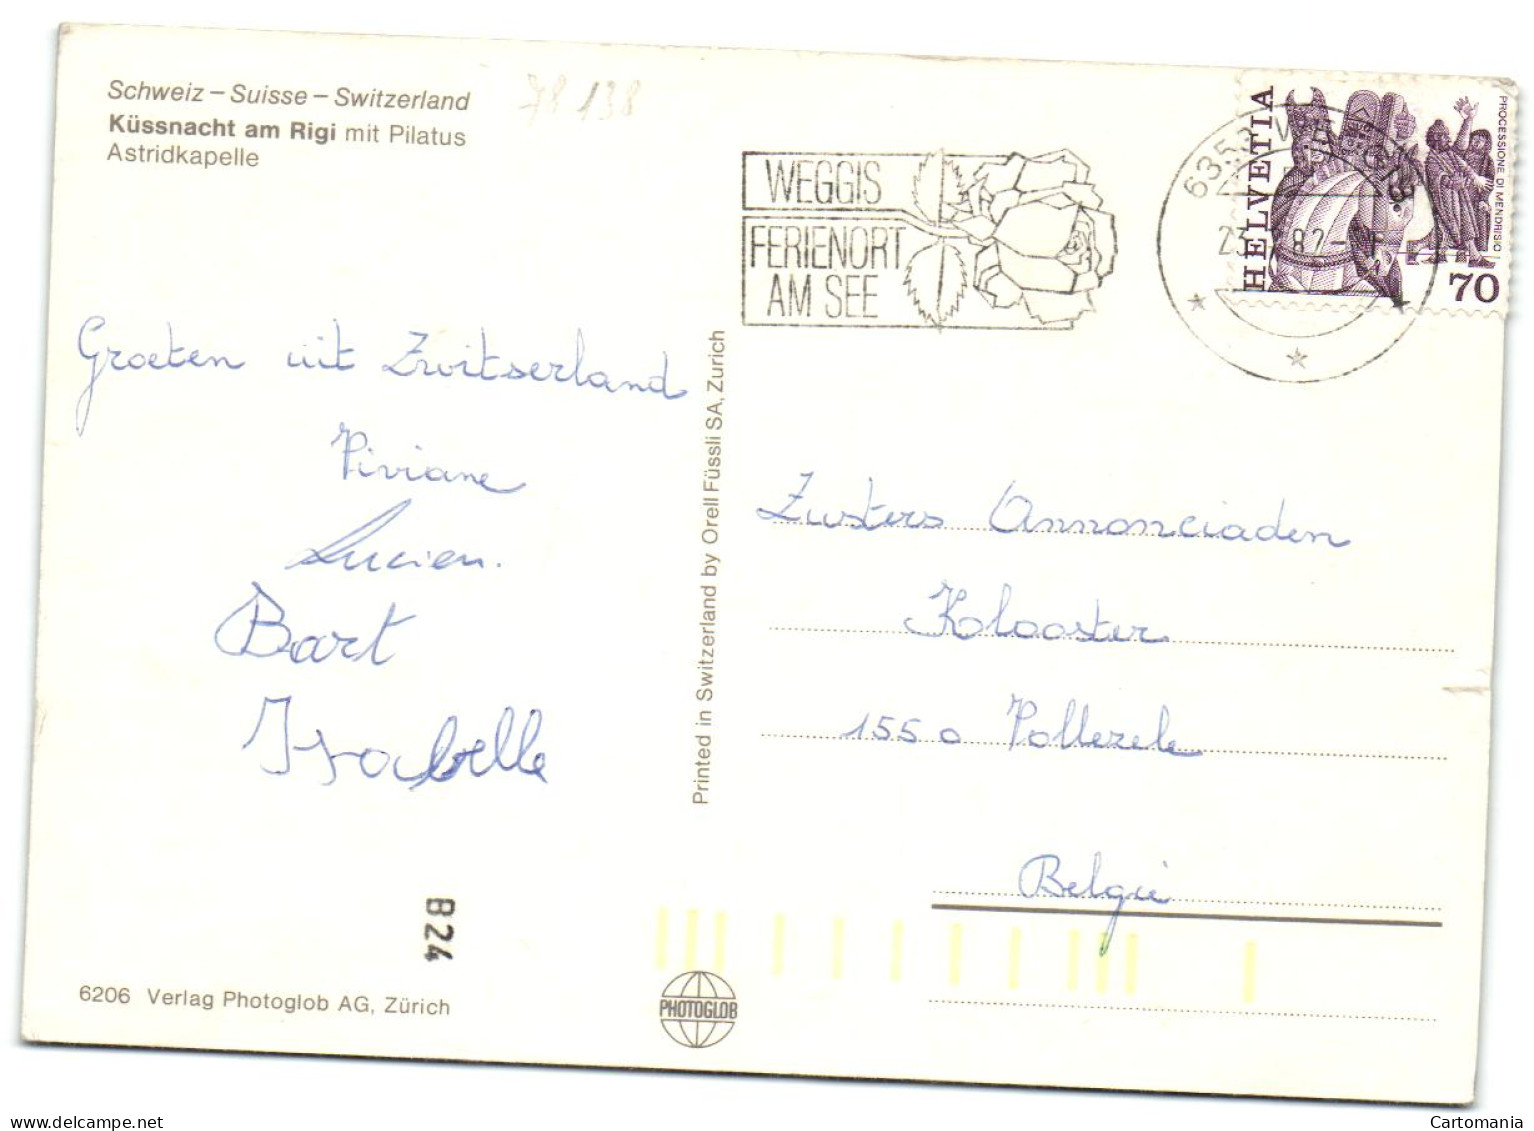 Schweiz – Suisse – Switzerland
Küssnacht am Rigi mit Pilatus
Astridkapelle
78 138
WEGGIS
FERIENORT
AM SEE
6353
HELVETIA
PROCESSIONE DI MENDRISIO
70
Groeten uit Zwitserland
Viviane
Lucien.
Bart
Isabelle
Printed in Switzerland by Orell Füssli SA, Zurich
Zusters Annonciaden
Klooster
1550 Vollezele
België
B24
6206 Verlag Photoglob AG, Zürich
PHOTOGLOB
www.delcampe.net
Cartomania